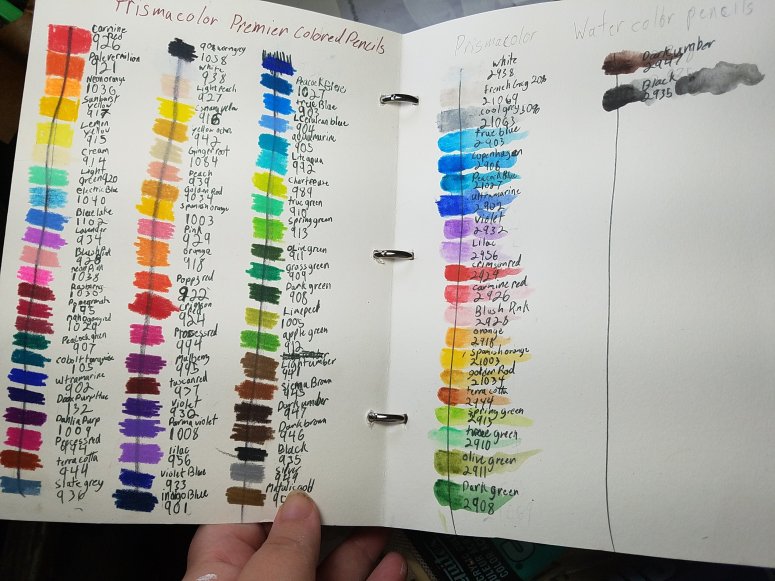 Prismacolor Premier Colored Pencils
Carmine
Red
926
Pale vermilion
921
Neon orange
1036
Sunburst
yellow
917
Lemon
yellow
915
Cream
914
Light
green 920
electric Blue
1040
Blue lake
1102
Lavender
934
Blush Pink
928
neon Pink
1038
Raspberry
1030
Pomegranate
195
Mahogany red
1029
Peacock green
907
cobalt turquoise
105
ultramarine
902
Dark Purp Hue
132
Dahlia Purp
1009
Process red
994
terra cotta
944
slate grey
936
90% warm grey
1058
White
938
Light peach
927
Canary yellow
916
Yellow ochre
942
Ginger root
1084
Peach
939
golden Rod
1034
Spanish orange
1003
Pink
929
orange
918
Poppy red
922
Crimson
red
924
Process red
994
Mulberry
995
tuscan red
937
Violet
932
Parma violet
1008
lilac
956
violet Blue
933
indigo Blue
901
Peacock Blue
1027
true Blue
903
Cerulean blue
904
aquamarine
905
Lite aqua
992
Chartreuse
989
true green
910
Spring green
913
Olive green
911
grass green
909
Dark green
908
Limepeel
1005
apple green
912
Light umber
941
Sienna Brown
945
Dark umber
947
Dark brown
946
Black
935
Silver
949
Metalic gold
Prismacolor
white
2938
french Grey 20%
21069
cool grey 50%
21063
true blue
2903
Copenhagen
2906
Peacock Blue
21027
ultramarine
2902
Violet
2932
Lilac
2956
Crimson red
2924
carmine red
2926
Blush Pink
2928
orange
2918
Spanish orange
21003
golden Rod
21034
terra cotta
2944
spring green
2913
true green
2910
olive green
2911
Dark green
2908
Water color pencils
Dark umber
2947
Black
2935